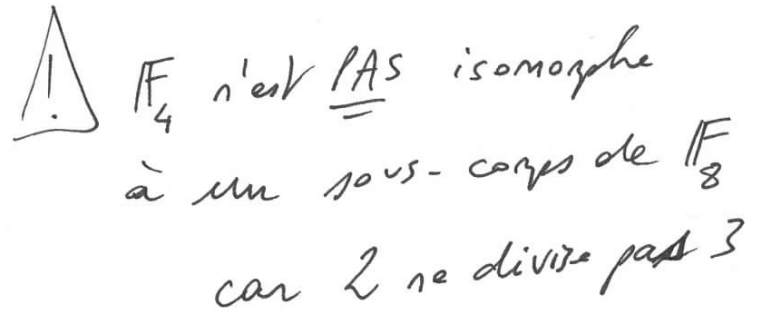 ! 𝔽₄ n'est PAS isomorphe
à un sous-corps de 𝔽₈
car 2 ne divise pas 3